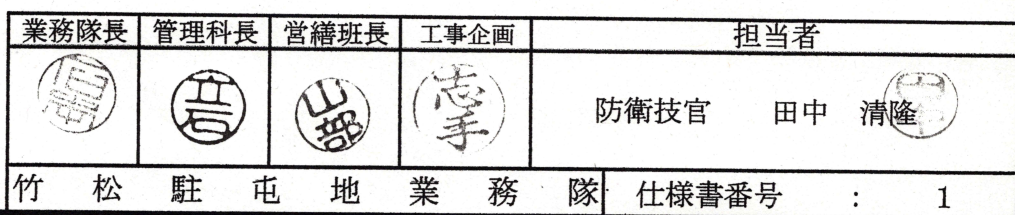 業務隊長 管理科長 営繕班長 工事企画 担当者
立石 山部 志手 防衛技官 田中 清隆 田中
竹松駐屯地業務隊 仕様書番号 : 1